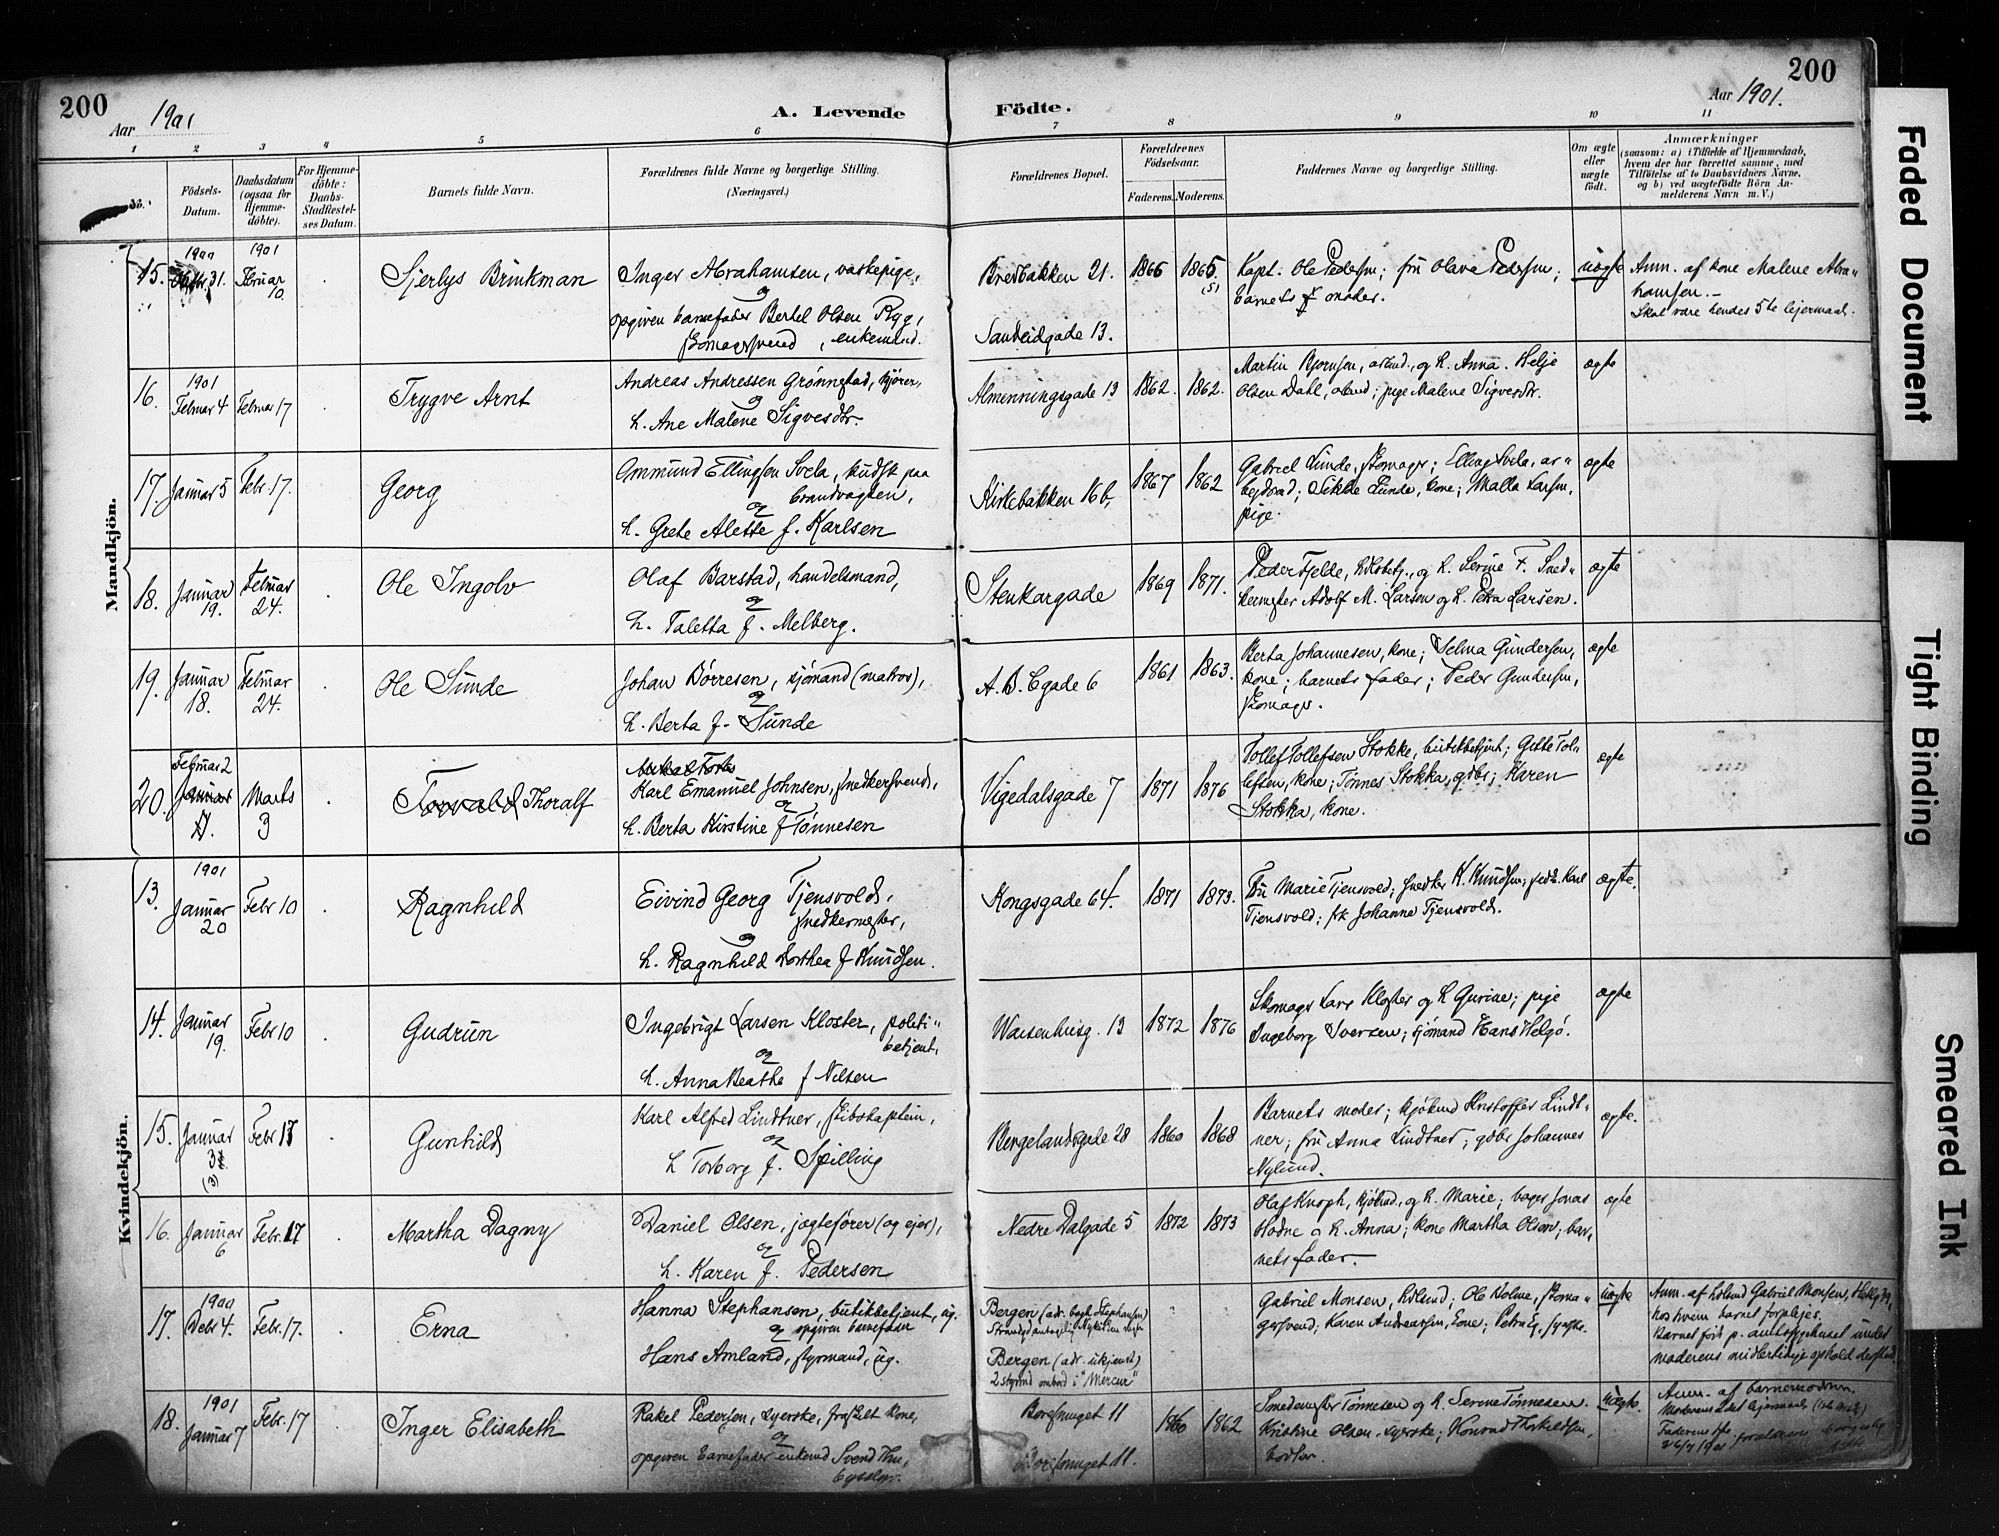 200
Aar 1901
A. Levende Födte.
Aar 1901.
200
1 2 3 4 5 6 7 8 9 10 11
No.
Födsels-Datum.
Daabsdatum (ogsaa for Hjemme-döbte).
For Hjemme-döbte: Daabs-Stadfæstel-ses Datum.
Barnets fulde Navn.
Forældrenes fulde Navne og borgerlige Stilling.
(Næringsvei.)
Forældrenes Bopæl.
Forældrenes Födselsaar.
Faderens. Moderens.
Faddernes Navne og borgerlige Stilling.
Om ægte eller uægte födt.
Anmærkninger
(saasom: a) i Tilfælde af Hjemmedaab, hvem der har forrettet samme, med Tilföielse af to Daabsvidners Navne, og b) ved uægtefödte Börn An-melderens Navn m. V.)
Mandkjön.
15. 1900 31. 1901 Februar 10. Sjerlys Brinkman
Inger Abrahamsen, vaskepige,
og
opgiven barnefader Bertel Olsen Ryg,
skomagersvend, enkemand.
Bredbakken 21.
Sandeidgade 13.
1866 1865 (5)
Kapt. Ole Pedersen; fru Olava Pedersen;
barnets moder.
uægte
Anm. af kone Malene Abra-
hamsen.-
Skal være hendes 5te lejermaal.
16. 1901 Februar 4 Februar 17 Trygve Arnt
Andreas Andressen Grønnestad, kjører,
og
h. Ane Malene Sigvesdtr.
Almenningsgade 13 1862. 1862.
Martin Bjørnsen, arbmd., og h. Anna. Helje
Olsen Dahl, arbmd; pige Malene Sigvesdtr.
ægte
17. Januar 5 Febr. 17. Georg
Gmmund Ellingsen Svela, kudsk paa
brandvagten,
og
h. Grete Alette f. Karlsen
Kirkebakken 16b, 1867 1862
Gabriel Lunde, skomager; Elling Svela, ar-
bejdsmd; Sikke Lunde, kone; Malla Larsen,
pige.
ægte
18. Januar 19. Februar 24. Ole Ingolv
Olaf Barstad, handelsmand,
og
h. Taletta f. Melberg.
Stenkargade 1869 1871.
Peder Fjelde, hdlsbetj., og h. Serine F. Sned-
kermester Adolf M. Larsen og h. Petra Larsen.
ægte
19. Januar 18. Februar 24. Ole Sunde
Johan Børresen, sjømand (matros),
og
h. Berta f. Sunde
A. B. Cgade 6 1861 1863.
Berta Johannesen, kone; Selma Gundersen,
kone; barnets fader; Peder Gundersen,
skomager.
ægte
20. Februar 2 Januar Marts 3 Torvald Thoralf
Karl Emanuel Johnsen, snedkersvend,
og
h. Berta Kirstine f Tønnesen
Vigedalsgade 7 1871 1876
Tollef Tollefsen Stokke, butikbetjent; Gitte Tol-
lefsen, kone; Tønnes Stokka, gdbr; Karen
Stokka, kone.
ægte
Kvindekjön.
13. 1901 Januar 20 Febr 10 Ragnhild
Eivind Georg Tjensvold,
snedkermester,
og
h. Ragnhild Dorthea f Knudsen.
Kongsgade 64. 1871 1873.
Fru Marie Tjensvold; snedker K. Knudsen; Karl
Tjensvold; frk Johanne Tjensvold.
ægte.
14. Januar 19. Febr 10 Gudrun
Ingebrigt Larsen Kloster, politi-
betjent,
og
h. Anna Beathe f Nilsen
Waisenhusg. 13 1872 1876
Skomager Lars Kloster og h Gurine; pige
Ingeborg Iversen; sjømand Hans Helgø.
ægte
15. Januar 3 (3) Febr 17 Gunhild
Karl Alfred Lindtner, skibskaptein,
og
h Torborg f. Spilling
Bergelandsgade 28 1860 1868
Barnets moder; kjøbmd Kristoffer Lindt-
ner; fru Anna Lindtner; gdbr Johannes
Nylund.
ægte.
16. Januar 6 Febr. 17 Martha Dagny
Daniel Olsen, jægtefører (og ejer),
og
h. Karen f. Pedersen
Nedre Dalgade 5 1872 1873
Olaf Knoph, kjøbmd, og h. Marie; bager Jonas
Hodne og h. Anna; kone Martha Olsen; bar-
nets fader.
ægte
17. 1900 Debr 4. Febr. 17. Erna
Hanna Stephansen, butikbetjent, ug.
og opgiven barnefader
Hans Amland, styrmand, ug.
Bergen (adr. bagh. Stephansen)
Bergen (adr. ukjendt)
2 styrmd ombord i "Mercur"
Gabriel Monsen, hdlsmd; Ole Holme, skoma-
gersvend; Karen Andreassen, kone;
uægte
Anm. af hdlsmd Gabriel Monsen,
hos hvem barnet forplejes.
Barnet født p. amtssygehuset under
moderens midlertidige ophold dersted.
18. 1901 Januar 7 Febr. 17 Inger Elisabeth
Rakel Pedersen, syerske, fraskilt kone,
og
opgiven barnefader enkemd Svend Thu,
Boresmuget 11
Boresmuget 11.
1860 1862
Smedemester Tønnesen og h. Serine Tønnesen.
Kristine Olsen, syerske; Konrad Thorkildsen,
bødker.
uægte.
Anm. af barnemoderen.
Faded Document
Tight Binding
Smeared Ink